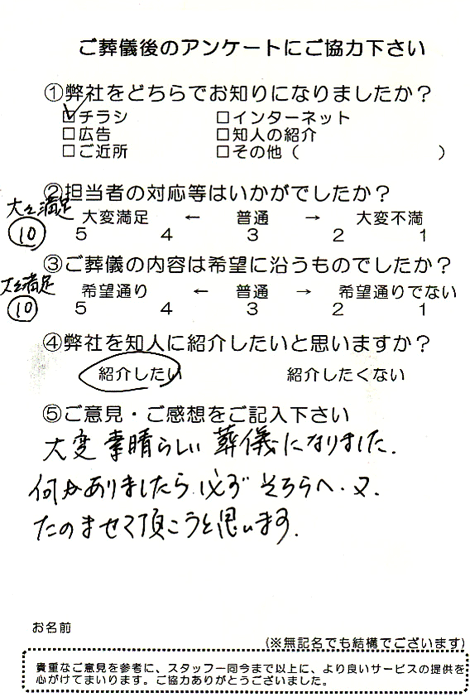 ご葬儀後のアンケートにご協力下さい
①弊社をどちらでお知りになりましたか？
☑チラシ □インターネット
□広告 □知人の紹介
□ご近所 □その他（ ）
②担当者の対応等はいかがでしたか？
大変満足 ← 普通 → 大変不満
⑩ 5 4 3 2 1
③ご葬儀の内容は希望に沿うものでしたか？
希望通り ← 普通 → 希望通りでない
⑩ 5 4 3 2 1
④弊社を知人に紹介したいと思いますか？
紹介したい 紹介したくない
⑤ご意見・ご感想をご記入下さい
大変素晴らしい葬儀になりました.
何かありましたら必ずそちらへ.又.
たのませて頂こうと思います.
お名前
(※無記名でも結構でございます)
貴重なご意見を参考に、スタッフ一同今まで以上に、より良いサービスの提供を
心がけてまいります。ご協力ありがとうございました。